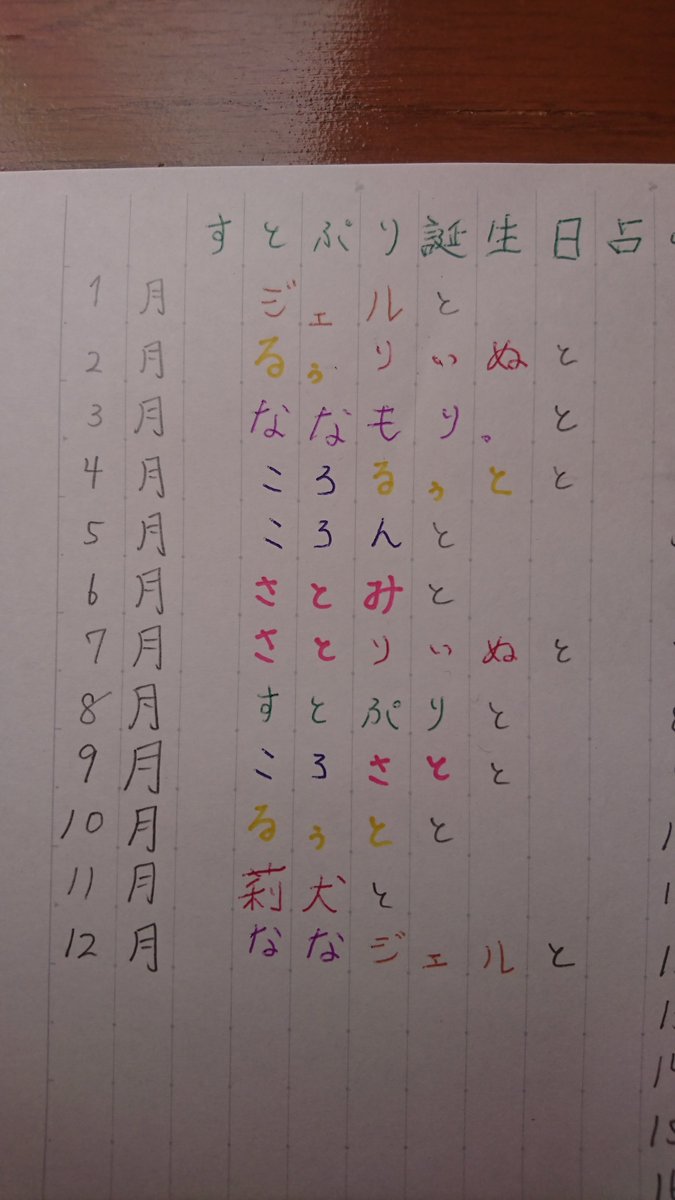 すとぷり誕生日占
1月 ジェルと
2月 るぅりいぬと
3月 ななもり。と
4月 ころるぅとと
5月 ころんと
6月 さとみと
7月 さとりいぬと
8月 すとぷりと
9月 ころさとと
10月 るぅとと
11月 莉犬と
12月 ななジェルと